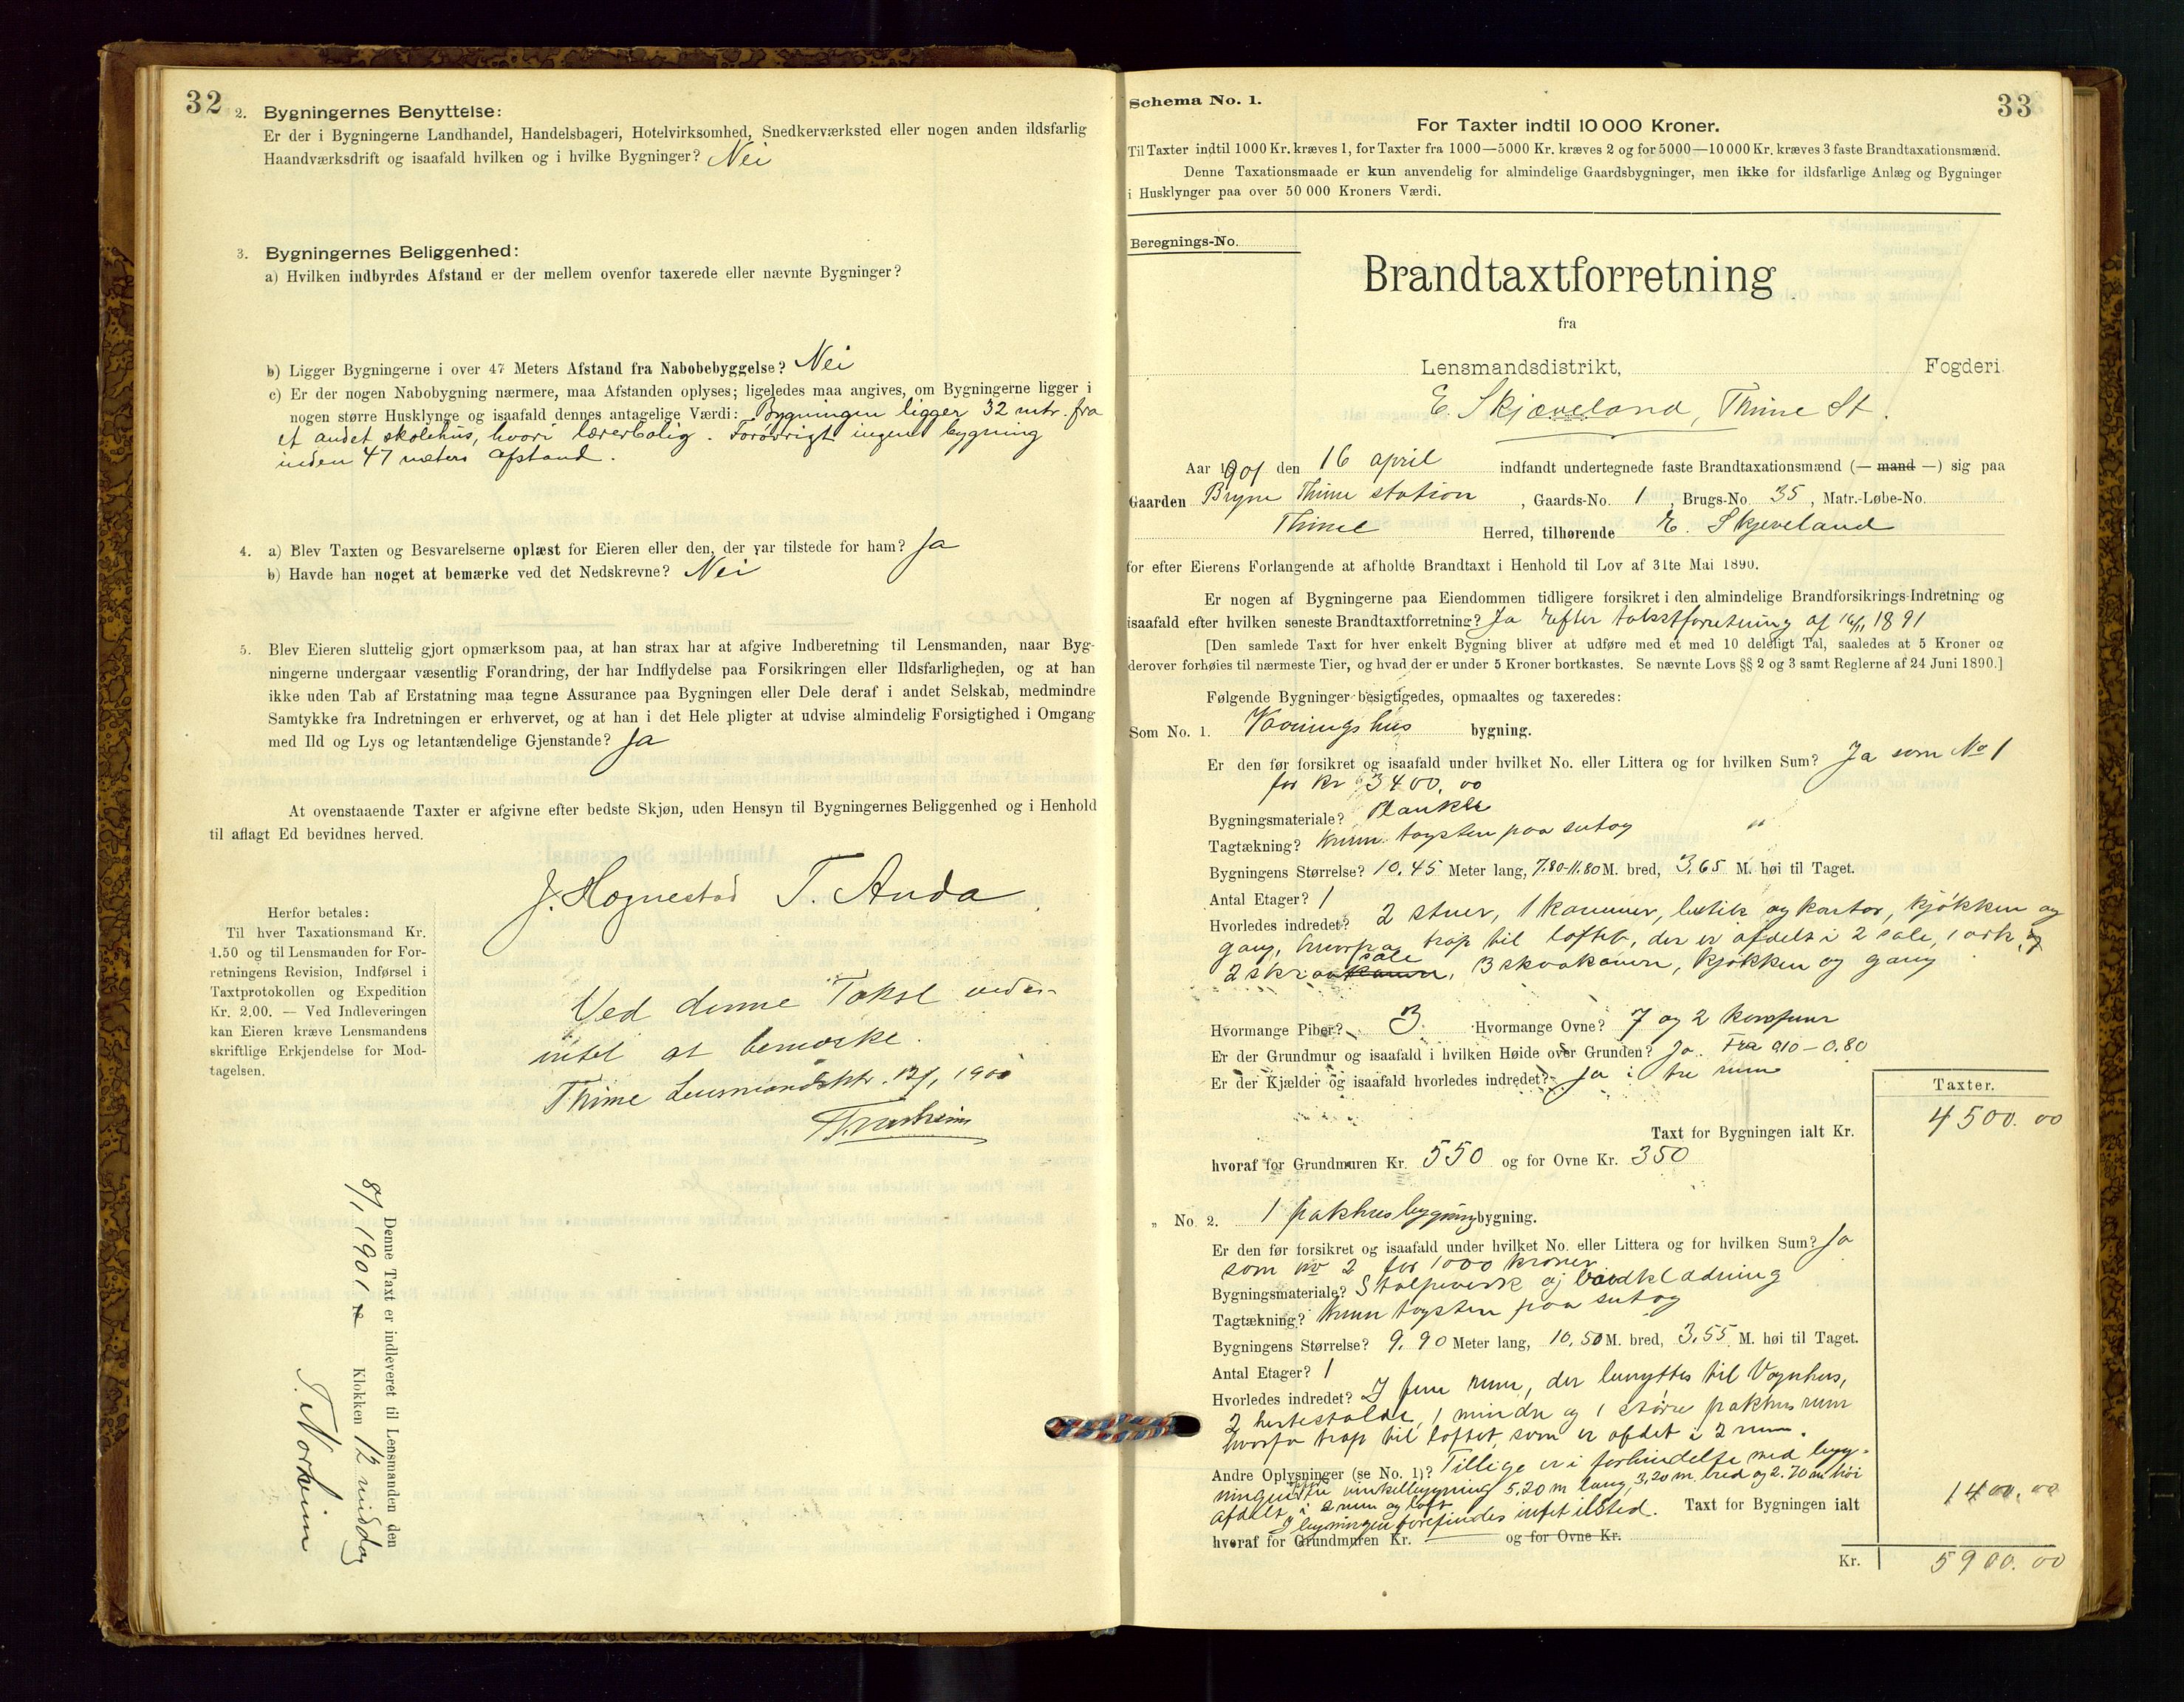 32
2. Bygningernes Benyttelse:
Er der i Bygningerne Landhandel, Handelsbageri, Hotelvirksomhed, Snedkerværksted eller nogen anden ildsfarlig
Haandværksdrift og isaafald hvilken og i hvilke Bygninger? Nei
3. Bygningernes Beliggenhed:
a) Hvilken indbyrdes Afstand er der mellem ovenfor taxerede eller nævnte Bygninger?
b) Ligger Bygningerne i over 47 Meters Afstand fra Nabobebyggelse? Nei
c) Er der nogen Nabobygning nærmere, maa Afstanden oplyses; ligeledes maa angives, om Bygningerne ligger i
nogen større Husklynge og isaafald dennes antagelige Værdi: Bygningen ligger 32 mtr. fra
et andet skolehus, hvori lærerbolig. Forøvrigt ingen bygning
inden 47 meters afstand.
4. a) Blev Taxten og Besvarelserne oplæst for Eieren eller den, der var tilstede for ham? Ja
b) Havde han noget at bemærke ved det Nedskrevne? Nei
5. Blev Eieren sluttelig gjort opmærksom paa, at han strax har at afgive Indberetning til Lensmanden, naar Byg-
ningerne undergaar væsentlig Forandring, der har Indflydelse paa Forsikringen eller Ildsfarligheden, og at han
ikke uden Tab af Erstatning maa tegne Assurance paa Bygningen eller Dele deraf i andet Selskab, medmindre
Samtykke fra Indretningen er erhvervet, og at han i det Hele pligter at udvise almindelig Forsigtighed i Omgang
med Ild og Lys og letantændelige Gjenstande? Ja
At ovenstaaende Taxter er afgivne efter bedste Skjøn, uden Hensyn til Bygningernes Beliggenhed og i Henhold
til aflagt Ed bevidnes herved.
J. Hognestad T. Anda
Herfor betales:
Til hver Taxationsmand Kr.
1.50 og til Lensmanden for For-
retningens Revision, Indførsel i
Taxtprotokollen og Expedition
Kr. 2.00. — Ved Indleveringen
kan Eieren kræve Lensmandens
skriftlige Erkjendelse for Mod-
tagelsen.
Ved denne Takst
intet at bemærke.
Thime Lensmandsktr.
Denne Taxt er indleveret til Lensmanden den
8/1 1901 Klokken 12 middag
T. Norheim
Schema No. 1.
33
For Taxter indtil 10 000 Kroner.
Til Taxter indtil 1000 Kr. kræves 1, for Taxter fra 1000—5000 Kr. kræves 2 og for 5000—10000 Kr. kræves 3 faste Brandtaxationsmænd.
Denne Taxationsmaade er kun anvendelig for almindelige Gaardsbygninger, men ikke for ildsfarlige Anlæg og Bygninger
i Husklynger paa over 50 000 Kroners Værdi.
Beregnings-No.
Brandtaxtforretning
fra
Lensmandsdistrikt, Fogderi
E. Skjæveland, Thime St.
Aar 1901 den 16 april indfandt undertegnede faste Brandtaxationsmænd (— mand —) sig paa
Gaarden Bryne Thime station, Gaards-No. 1, Brugs-No 35, Matr.-Løbe-No.
Thime Herred, tilhørende E. Skjeveland
for efter Eierens Forlangende at afholde Brandtaxt i Henhold til Lov af 31te Mai 1890.
Er nogen af Bygningerne paa Eiendommen tidligere forsikret i den almindelige Brandforsikrings-Indretning og
isaafald efter hvilken seneste Brandtaxtforretning? Ja Efter takstforretning af 16/11 1891
[Den samlede Taxt for hver enkelt Bygning bliver at udføre med et med 10 deleligt Tal, saaledes at 5 Kroner og
derover forhøies til nærmeste Tier, og hvad der er under 5 Kroner bortkastes. Se nævnte Lovs §§ 2 og 3 samt Reglerne af 24 Juni 1890.]
Følgende Bygninger besigtigedes, opmaaltes og taxeredes:
Som No. 1. Vaaningshus bygning.
Er den før forsikret og isaafald under hvilket No. eller Littera og for hvilken Sum? Ja som No 1
for kr 3400.00
Bygningsmateriale? Planke
Tagtækning? Krum tagsten paa sutag
Bygningens Størrelse? 10.45 Meter lang, 7.80-11.80 M. bred, 3.65 M. høi til Taget.
Antal Etager? 1
Hvorledes indredet? 2 stuer, 1 kammer, butik og kontor, kjøkken og
gang, hvorpaa trap til loftet, der er afdelt i 2 sale, 1 ark, og
2 skraasale, 3 skraakamre, kjøkken og gang
Hvormange Piber? 3. Hvormange Ovne? 7 og 2 komfurer
Er der Grundmur og isaafald i hvilken Høide over Grunden? Ja. Fra 0.10 – 0.80
Er der Kjælder og isaafald hvorledes indredet? Ja i tre rum
Taxter.
Taxt for Bygningen ialt Kr. 4500.00
hvoraf for Grundmuren Kr. 550 og for Ovne Kr. 350
„ No. 2. 1 pakhusbygning bygning.
Er den før forsikret og isaafald under hvilket No. eller Littera og for hvilken Sum? Ja
som no 2 for 1000 kroner
Bygningsmateriale? Stolpeverk og bordklædning
Tagtækning? Krum tagsten paa sutag
Bygningens Størrelse? 9.90 Meter lang, 10.50 M. bred, 3.55 M. høi til Taget.
Antal Etager? 1
Hvorledes indredet? I fem rum, der benyttes til Vognhus,
2 hestestalde, 1 mindre og 1 større pakhusrum
hvorfra trap til loftet, som er afdelt i 2 rum.
Andre Oplysninger (se No. 1)? Tillige er i forbindelse med byg-
ningen vinkelbygning 5.20 m lang, 3.20 m bred og 2.70 m høi
afdelt i 2 rum og loft.
I bygningen forefindes intet ildsted. Taxt for Bygningen ialt 1400.00
hvoraf for Grundmuren Kr. og for Ovne Kr.
Kr. 5900.00